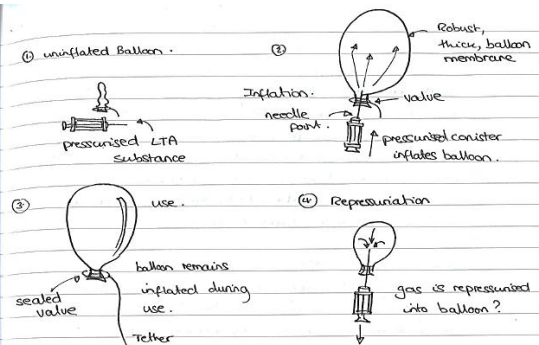 ① uninflated Balloon.
pressurised LTA
substance
②
Robust,
thick, balloon
membrane
Inflation.
needle
point.
valve
pressurised conister
inflates balloon.
③
use.
balloon remains
inflated during
use.
sealed
valve
Tether
④ Repressuriation
gas is repressurised
into balloon?